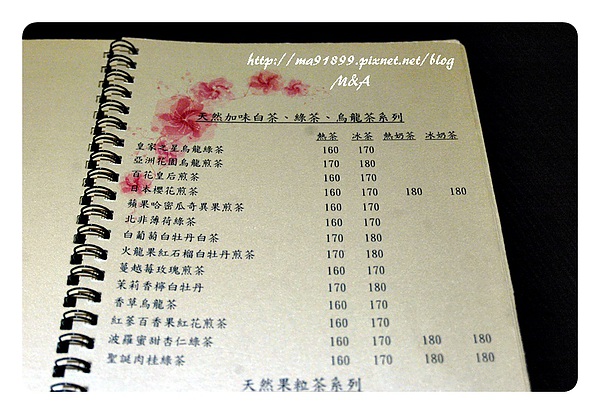 http://ma91899.pixnet.net/blog
M&A
天然加味白茶、綠茶、烏龍茶系列
熱茶 冰茶 熱奶茶 冰奶茶
皇家之星烏龍綠茶 160 170
亞洲花園烏龍煎茶 170 180
百花皇后煎茶 160 170
日本櫻花煎茶 160 170 180 180
蘋果哈密瓜奇異果煎茶 160 170
北非薄荷綠茶 160 170
白葡萄白牡丹白茶 170 180
火龍果紅石榴白牡丹煎茶 170 180
蔓越莓玫瑰煎茶 160 170
茉莉香檸白牡丹 170 180
香草烏龍茶 160 170
紅蔘百香果紅花煎茶 160 170
波羅蜜甜杏仁綠茶 160 170 180 180
聖誕肉桂綠茶 160 170 180 180
天然果粒茶系列